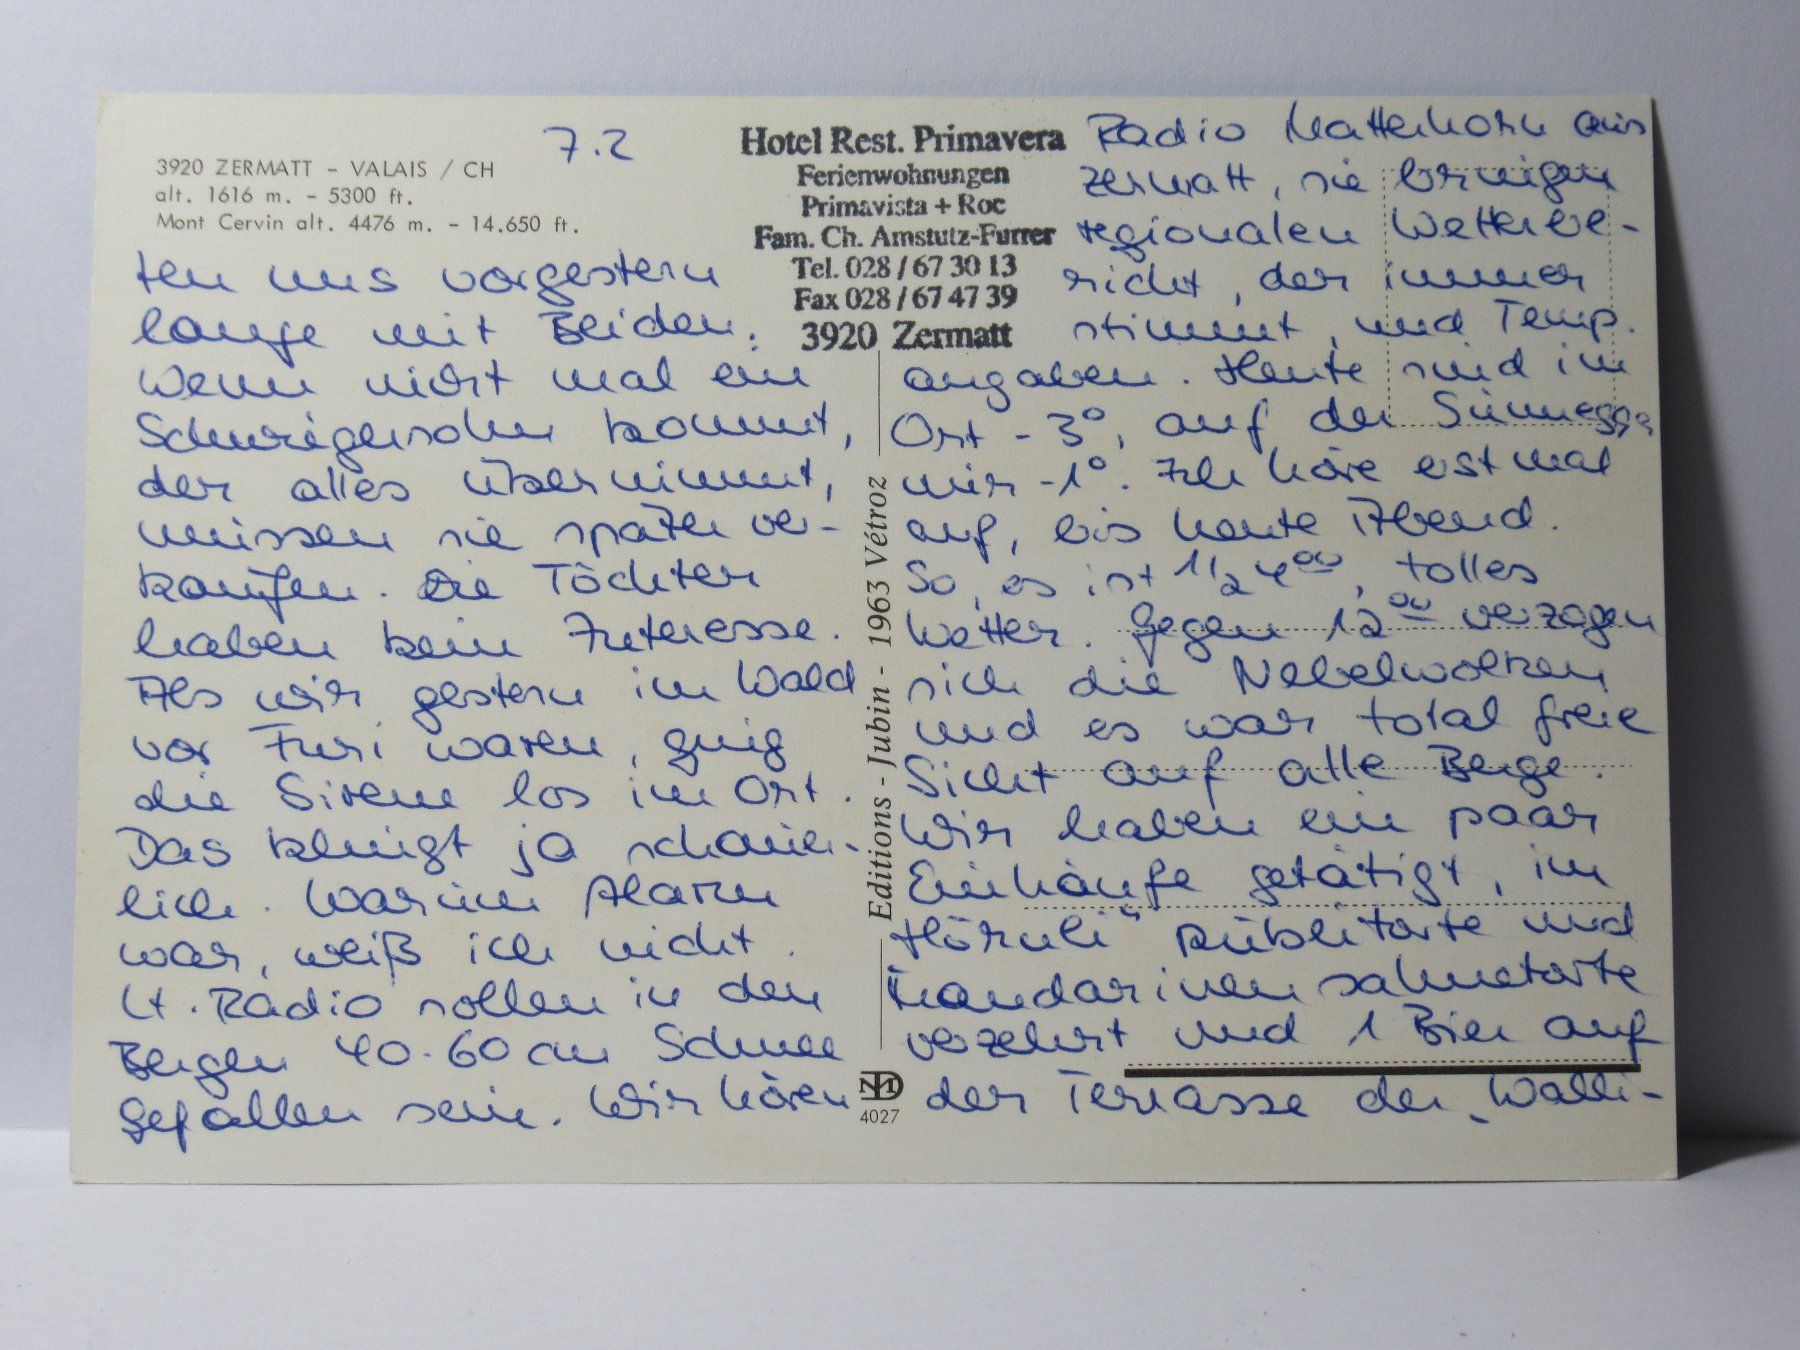 7.2
3920 ZERMATT – VALAIS / CH
alt. 1616 m. – 5300 ft.
Mont Cervin alt. 4476 m. – 14.650 ft.
Hotel Rest. Primavera
Ferienwohnungen
Primavista + Roc
Fam. Ch. Amstutz-Furrer
Tel. 028 / 67 30 13
Fax 028 / 67 47 39
3920 Zermatt
ten uns vorgestern
lange mit Beiden.
Wenn nicht mal ein
Schwiegersohn kommt,
der alles übernimmt,
müssen sie später ver-
kaufen. Die Töchter
haben kein Interesse.
Als wir gestern im Wald
vor Furi waren, ging
die Sirene los im Ort.
Das klingt ja schauer-
lich. Warum Alarm
war, weiß ich nicht.
Lt. Radio sollen in den
Bergen 40-60 cm Schnee
gefallen sein. Wir hören
Editions - Jubin - 1963 Vétroz
4027
Radio Matterhorn aus
Zermatt, sie bringen
regionalen Wetterbe-
richt, der immer
stimmt, und Temp.
angaben. Heute sind im
Ort -3°, auf der Sunnegga
nur -1°. Ich höre erst mal
auf, bis heute Abend.
So, es ist 1/2 4 00, tolles
Wetter. Gegen 12 00 verzogen
sich die Nebelwolken
und es war total freie
Sicht auf alle Berge.
Wir haben ein paar
Einkäufe getätigt, im
Hörnli" Rüblitorte und
Mandarinensahnetorte
verzehrt und 1 Bier auf
der Terrasse der „Walli-